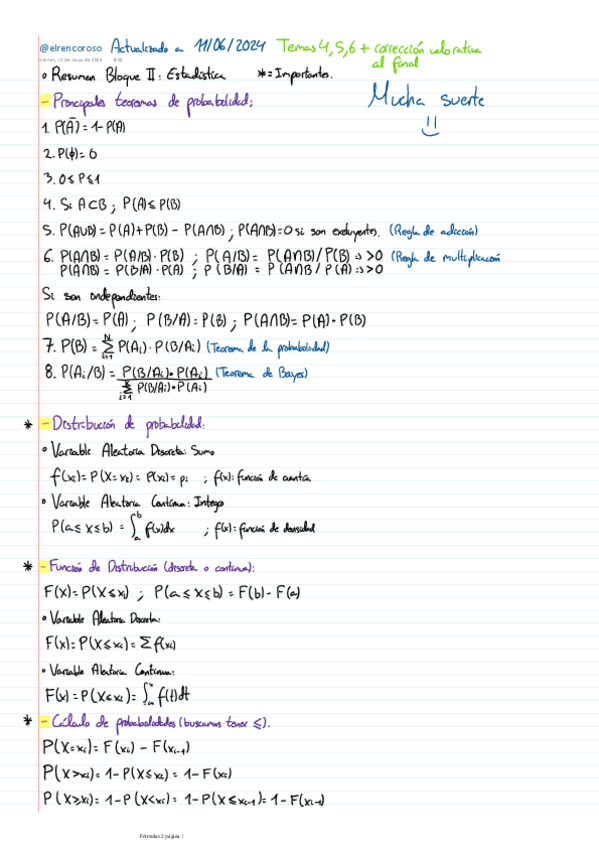 @elrencoroso Actualizado a 11/06/2024 Temas 4, 5, 6 + corrección valorativa al final
viernes, 10 de mayo de 2024
• Resumen Bloque II: Estadística * = Importantes.
- Principales teoremas de probabilidad: Mucha suerte
1. P(Ā) = 1 - P(A)
2. P(ϕ) = 0
3. 0 ≤ P ≤ 1
4. Si A ⊂ B ; P(A) ≤ P(B)
5. P(A∪B) = P(A) + P(B) - P(A∩B) ; P(A∩B) = 0 si son excluyentes. (Regla de adición)
6. P(A∩B) = P(A/B) · P(B) ; P(A/B) = P(A∩B) / P(B) => >0 (Regla de multiplicación
P(A∩B) = P(B/A) · P(A) ; P(B/A) = P(A∩B) / P(A) => >0
Si son independientes:
P(A/B) = P(A) ; P(B/A) = P(B) ; P(A∩B) = P(A) · P(B)
7. P(B) = Σ i=1 N P(Ai) · P(B/Ai) (Teorema de la probabilidad)
8. P(Ai/B) = P(B/Ai) · P(Ai) / Σ i=1 P(B/Ai) · P(Ai) (Teorema de Bayes)
* - Distribución de probabilidad:
• Variable Aleatoria Discreta: Sumo
f(xi) = P(X = xi) = P(xi) = pi ; f(x): función de cuantía
• Variable Aleatoria Continua: Integro
P(a ≤ X ≤ b) = ∫ a b f(x)dx ; f(x): función de densidad
* - Función de Distribución (discreta o continua):
F(x) = P(X ≤ x) ; P(a ≤ X ≤ b) = F(b) - F(a)
• Variable Aleatoria Discreta:
F(x) = P(X ≤ xi) = Σ f(xi)
• Variable Aleatoria Continua:
F(x) = P(X ≤ xi) = ∫ -∞ x f(t)dt
* - Cálculo de probabilidades (buscamos tener ≤).
P(X = xi) = F(xi) - F(xi-1)
P(X > xi) = 1 - P(X ≤ xi) = 1 - F(xi)
P(X ≥ xi) = 1 - P(X < xi) = 1 - P(X ≤ xi-1) = 1 - F(xi-1)
Fórmulas 2 página 1